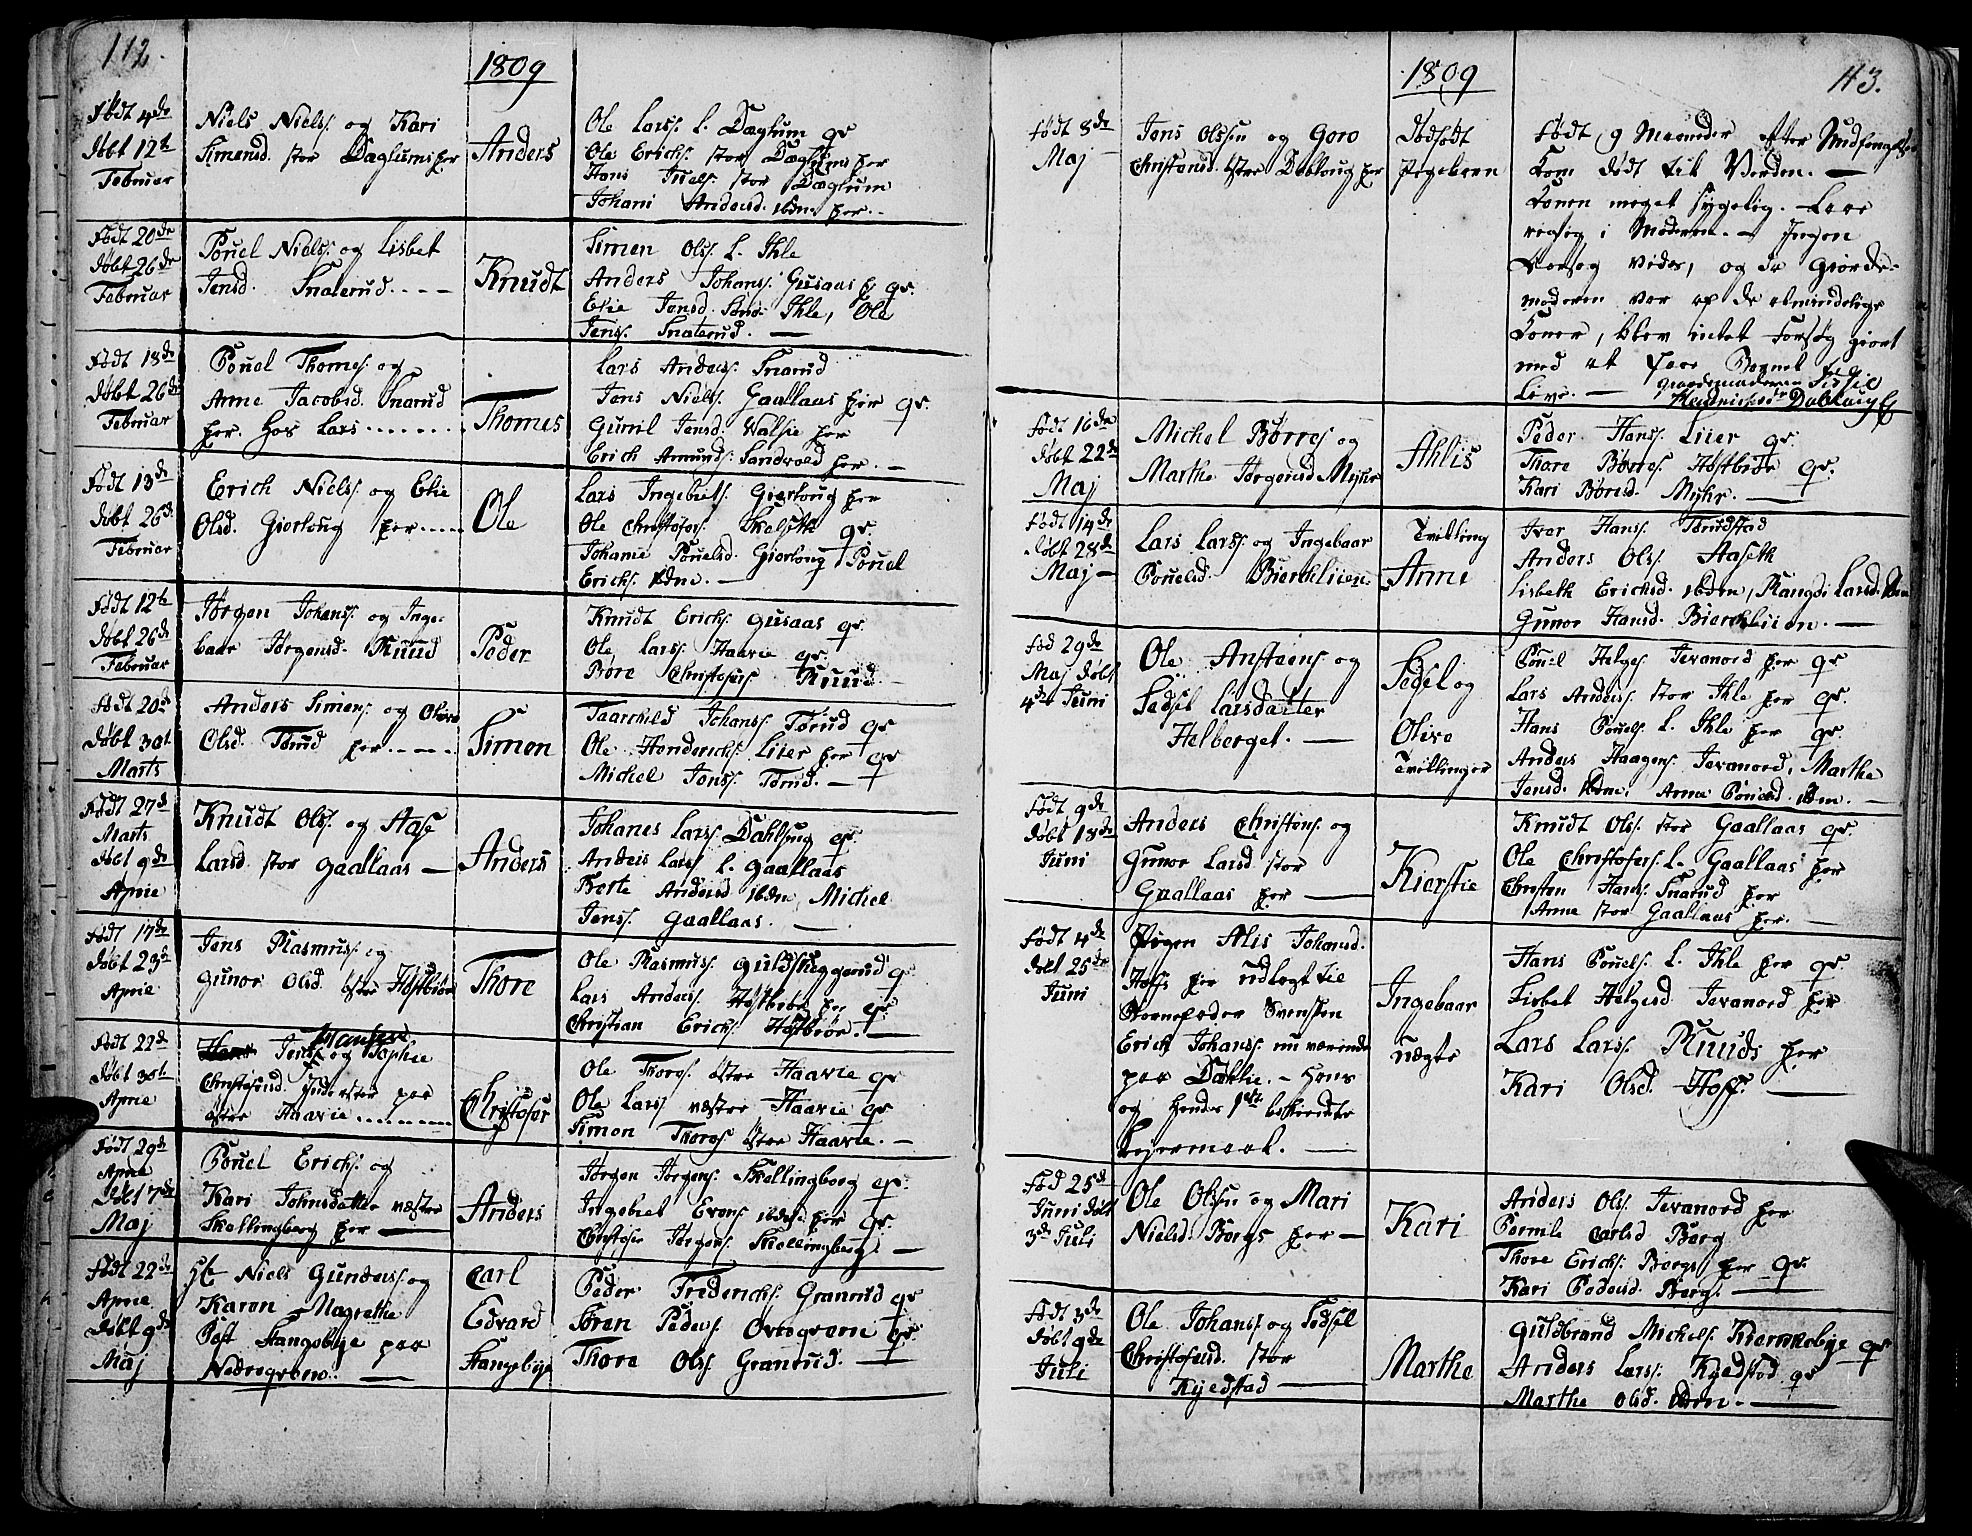 112.
1809
Født 4de
Døbt 12te
Februar
Niels Niels. og Kari
Simensd. stor Dæglums per
Anders
Ole Lars. L. Dæglum qr
Ole Erichs. stor Dæglums per
Hans Juels. stor Dæglum
Johani Andersd. ibdm per.
Født 20de
Døbt 26de
Februar
Pouel Niels. og Lisbet
Jensd. Snaterud.
Knudt
Simen Ols. L. Ihle
Anders Johans. Gusaas p qr.
Elie Jonsd. Ihle, Ole
Jens. Snaterud.
Født 18de
Døbt 26de
Februar
Pouel Thomes. og
Anne Jacobsd. Snarud
per. hos Lars
Thomes
Lars Anders. Snarud
Jens Niels. Gaallaas per qr.
Gunil Jensd. Valsie per
Erich Amunds. Sandvold per.
Født 13de
Døbt 26d.
Februar
Erich Niels. og Elie
Olsd. Giørloug per
Ole
Lars Ingebrets. Giørloug per
Ole Christofers. Skelsett qr.
Johanne Pouelsd. Giørloug Pouel
Erichs. ibdm.
Født 12te
Døbt 26de
Februar
Jørgen Johans. og Inge-
baar Jørgensd. Ruud
Peder
Knudt Erichs. Gusaas qr.
Ole Lars. Haavie qr.
Børe Christofers. Ruud
Født 20de
Døbt 30t
Marts
Anders Simens. og Olava
Olsd. Torud per
Simen
Taarchild Johans. Torud qr
Ole Henderichs. Lier per qr
Michel Jons. Torud.
Født 27d
Marts
Døbt 9de
Aprie
Knudt Ols. og Aase
Larsd. stor Gaallaas
Anders
Johanes Lars. Dahlsjug qr.
Anders Lars. L. Gaallaas
Berte Andersd. ibdm, Michel
Jens. Gaallaas.
Født 17de
Døbt 23de
Aprie
Jens Rasmus. og
Gunor Olsd. østre Høstbiør
Thore
Ole Rasmus. Guldskeggerud qr
Lars Anders. Høstbiør per qr
Christian Erichs. Høstbiør.
Født 22d
Døbt 30te
Aprie
Jens. og Sophie
Christofersd. Inderster paa
østre Haavie
Christofer
Ole Thores. østre Haavie qr
Ole Lars. vestre Haavie qr
Simon Thores. østre Haavie.
Født 29d
Aprie
Døbt 7de
Maj
Pouel Erichs. og
Kari Johnsdatter vestre
Skallingberg per
Anders
Jørgen Jørgens. Skellingberg qr.
Ingebret Evens. ibdm per qr.
Christofer Jørgens. Skellingberg.
Født 22de
Aprie
Døbt 9de
Maj
Niels Gunders. og
Karen Magrethe
Post Stangebye paa
Nedregrøen.
Carl
Edvard
Stangebye
Peder Friderichs. Granrud qr
Søren Peders. Ovregrøen qr
Thore Ols. Granrud.
113.
1809
Født 8de
Maj
Jens Olsen og Goro
Christensd. østre Dobloug per
Dødfødt
Pigebarn
Født 9 Maaneder efter Undfangelse
Kom død til Verden.
Konen meget sygelig.
i Moderen. Ingen
Aarsag vides, og da Giorde-
moderen var af de almindelige
Koner, blev intet Forsøg giort
med at faae Barnet
Live. Giordemoderen Sissil
Hendrichsd. Dobloug E.
Født 16de
Døbt 22de
Maj
Michel Børres. og
Marthe Jørgensd. Myhr
Ahlis
Peder Hans. Lier qr.
Thore Børres. Høstbiør qr.
Kari Børesd. Myhr.
Født 14de
Døbt 28d
Maj
Lars Lars. og Ingebaar
Pouelsd. Bierckliien
Tvilling
Anne
Iver Hans. Torudstad
Anders Ols. Aaseth
Lisbeth Erichsd. ibdm, Rangdi Larsd. ibm
Gunor Hansd. Bierckliien.
Fød 29de
Maj Døbt
4de Juni
Ole Anstens. og
Sedsel Larsdatter
Helberget.
Sedel og
Olive
Tvillinger
Pouel Helges. Jevanord per qr
Lars Anders. stor Ihle per qr.
Hans Pouels. L. Ihle per qr
Anders Haagens. Jevanord, Marthe
Jensd. ibdm. Anne Pouelsd. ibm.
Født 9de
Døbt 18de
Juni
Anders Christens. og
Gunor Larsd. stor
Gaallaas per
Kierstie
Knudt Ols. stor Gaallaas qr.
Ole Christofers. L. Gaallaas per
Christen Hans. Snarud per
Anne stor Gaallaas per.
Født 4de
Døbt 25de
Juni
Pigen Alis Johansd.
Hoffs per udlagt til
Barnefader Svensken
Erich Johans. nu værende
paa Dæhlie. Hans
og Hendes 1ste bekiendte
Leiermaal.
Ingebaar
uægte
Hans Pouels. L. Ihle per qr.
Lisbet Helgesd. Jevanord per
Lars Lars. Ruuds per
Kari Olsd. Hoff.
Fød 25d
Juni Døbt
3de Juli
Ole Olsen og Mari
Nielsd. Borgs per
Kari
Anders Ols. Jevanord per
Pernile Carlsd. Borg
Thore Erichs. Borgs per qr.
Kari Pedersd. Borg.
Født 3de
Døbt 9de
Juli
Ole Johans. og Sedsel
Christofersd. stor
Kyedstad
Marthe
Guldbrand Michels. Kierrekebye qr
Anders Lars. Kyedstad qr
Marthe Olsd. ibdem.